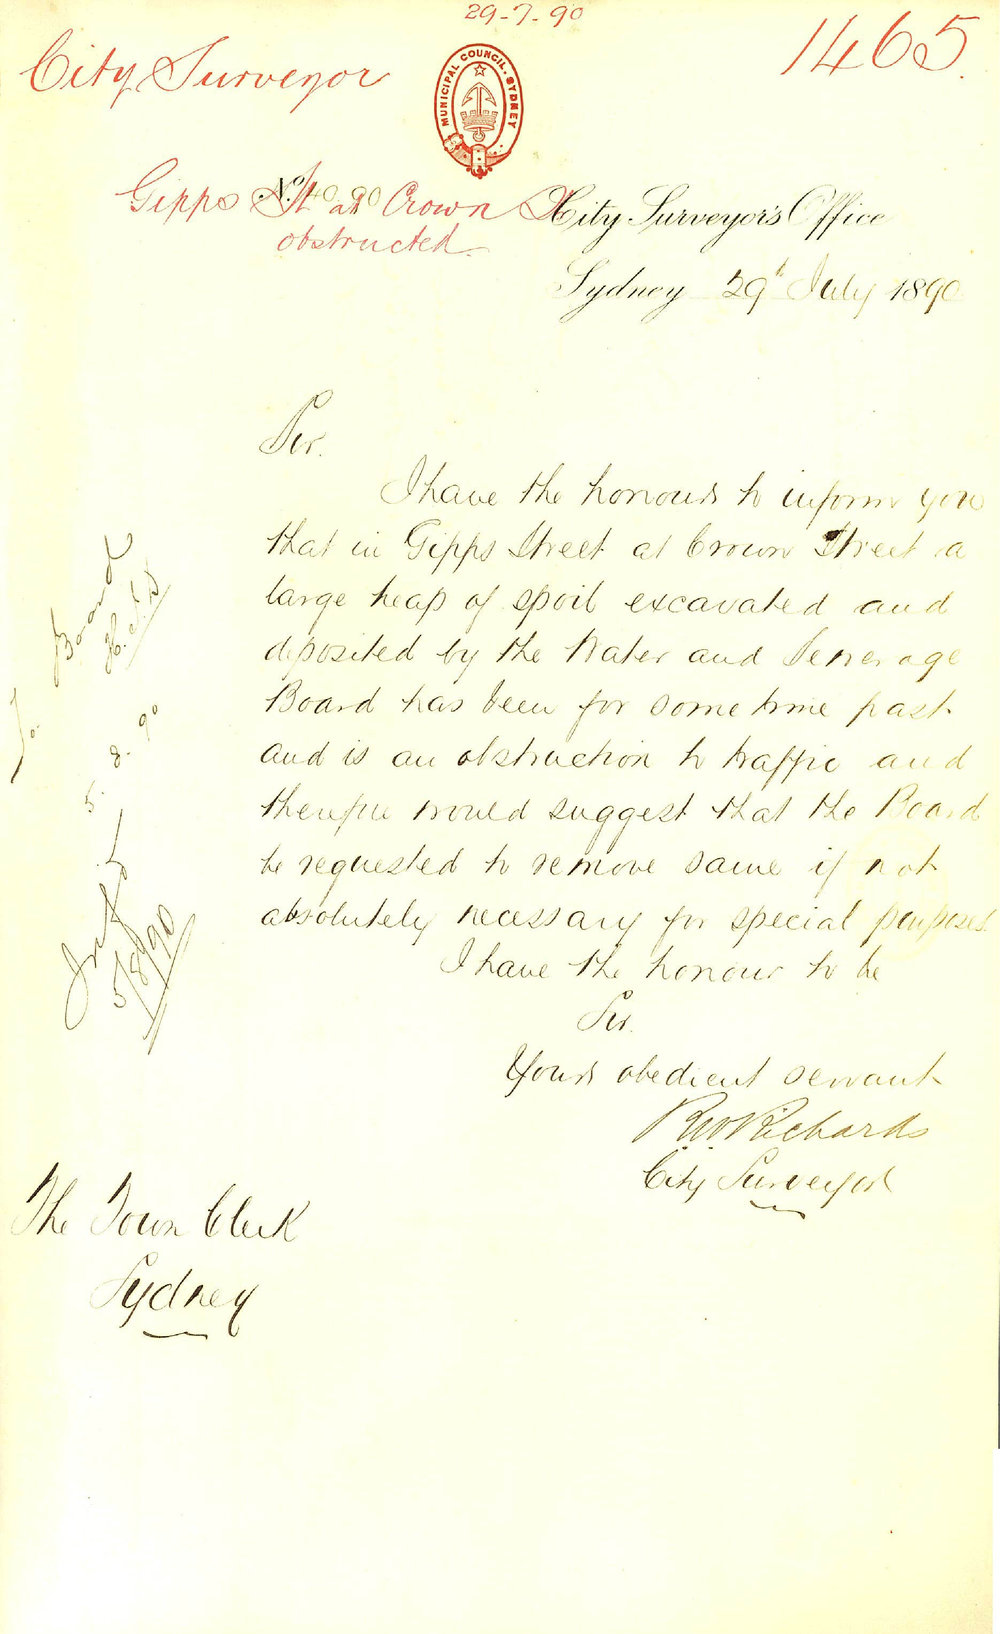 29-7-90
1465.
City Surveyor
MUNICIPAL COUNCIL. SYDNEY
Gipps St at Crown St
obstructed.
No. 90
City Surveyor's Office
Sydney 29th July 1890
Sir.
I have the honour to inform you
that in Gipps Street at Crown Street a
large heap of spoil excavated and
deposited by the Water and Sewerage
Board has been for some time past
and is an obstruction to traffic and
therefore would suggest that the Board
be requested to remove same if not
absolutely necessary for special purposes.
I have the honour to be
Sir.
Your obedient servant
RW Richards
City Surveyor
The Town Clerk
Sydney
To Board
5. 8. 90
5/8/90